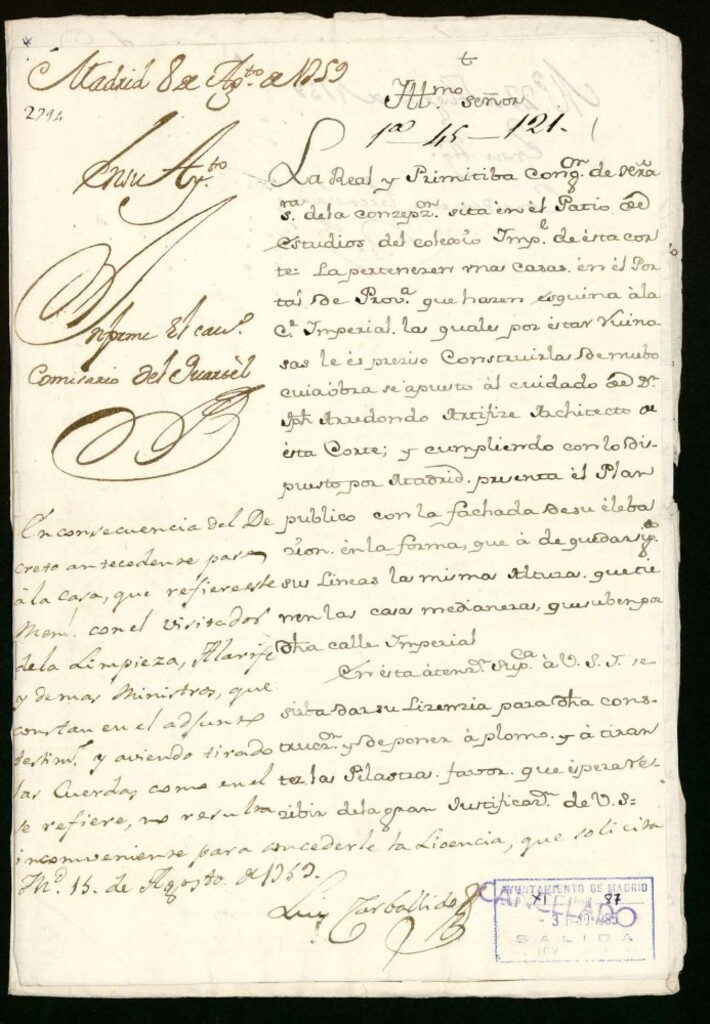 Madrid 8 de Ag.to de 1759
2794
t
Ill.mo Señor
1ª 45 - 121.
En su Ay.to
Informe el cav.o
Comisario del Quartèl
La Real y Primitiba Cong.on de señra
s. de la conzepz.n sita en èl Patio de
Estudios del colexio Imp.l de ésta cor
te: La pertenezen unas casas en èl Por
tal de Prov.a que hazen esquina à la
C.e Imperial. las quales por éstar ruino
sas le és preziso Construirlas de nuebo
cuia òbra se à puesto àl cuidado de D.n
Jph Arredondo Artifize Architecto de
ésta Corte; y cumpliendo con lo dis-
puesto por Madrid. presenta èl Plan
publico con la fachada de su èleba
zion. en la forma, que à de quedar
sus Lineas la misma Altura. que tie
nen las casas medianeras, que suben por
dha calle Imperial
En ésta àtenz.n Sup.ca à V.S.I. se
sirba dar su Lizenzia para dha cons-
trucz.n y de poner à plomo. y à tiran
tez las Pilastras. favor. que èspera rez-
zibir de la gran Justificaz.n de V.S=
En consecuencia del De
creto antecedente pase
à la casa, que refiere este
Mem.l con el visitador
de la Limpieza, Alarife
y demas Ministros, que
constan en el adjunto
testim.o y aviendo tirado
las Cuerdas como en el
se refiere, no resulta
inconveniente para concederle la Licencia, que solicita
M.d 15 de Agosto de 1759.
Luis Carballido
AYUNTAMIENTO DE MADRID
XI 87
CANCELADO
SALIDA